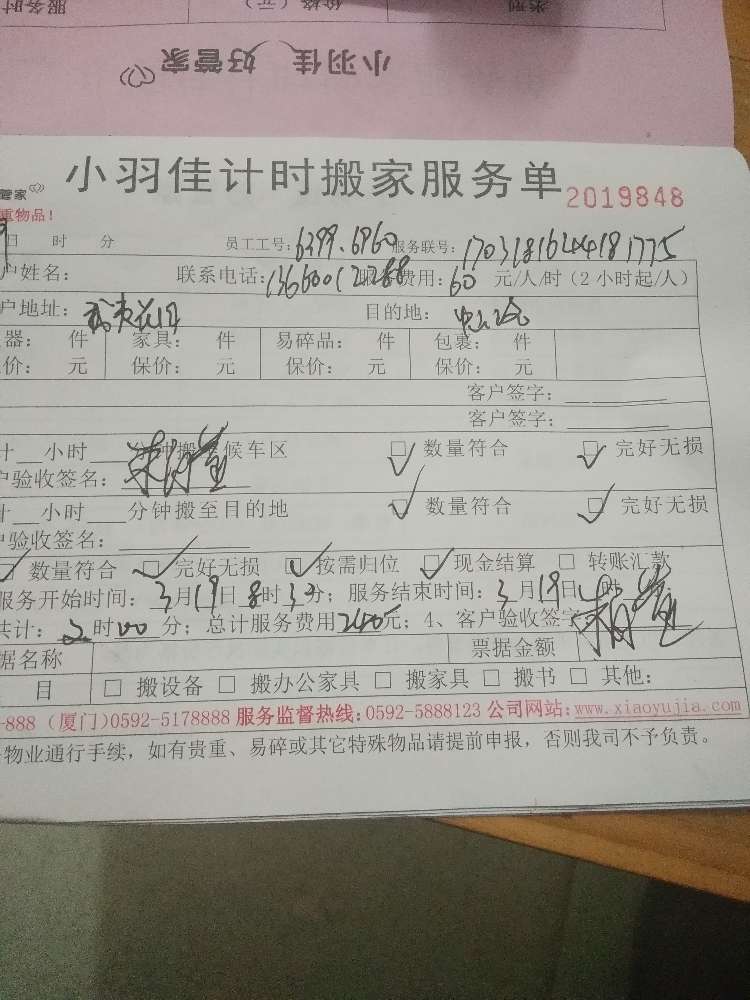 类别 价格（元） 服务时
小羽佳 好管家
管家 小羽佳计时搬家服务单 2019848
重物品！
日 时 分 员工工号：6399.6960 服务联号：17031816244181775
户姓名： 联系电话： 费用：60 元/人/时（2小时起/人）
户地址： 目的地：
器： 件 家具： 件 易碎品： 件 包裹： 件
价： 元 保价： 元 保价： 元 保价： 元
客户签字：
客户签字：
计 小时 分钟搬 候车区 数量符合 完好无损
户验收签名：
计 小时 分钟搬至目的地 数量符合 完好无损
户验收签名：
数量符合 完好无损 按需归位 现金结算 转账汇款
服务开始时间：3月19日8时3分；服务结束时间：3月19日 时
共计：2时00分；总计服务费用240元；4、客户验收签字
据名称 票据金额
目 搬设备 搬办公家具 搬家具 搬书 其他：
-888（厦门）0592-5178888 服务监督热线：0592-5888123 公司网站：www.xiaoyujia.com
物业通行手续，如有贵重、易碎或其它特殊物品请提前申报，否则我司不予负责。